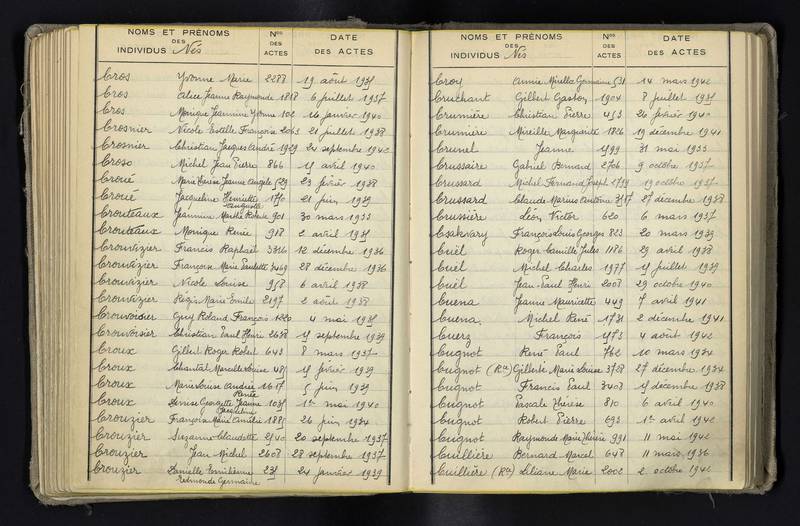 NOMS ET PRÉNOMS Nos DATE
DES INDIVIDUS Nés DES ACTES DES ACTES
Cros Yvonne Marie 2288 19 août 1935
Cros Alice Jeanne Raymonde 1818 6 juillet 1937
Cros Monique Jeannine Yvonne 102 16 janvier 1940
Crosnier Nicole Estelle Françoise 2063 21 juillet 1938
Crosnier Christian Jacques André 1929 24 septembre 1942
Croso Michel Jean Pierre 866 15 avril 1940
Croué Marie Thérèse Jeanne Angèle 529 23 février 1938
Croué Jacqueline Henriette Augusta 1710 21 juin 1939
Crouteaux Jeannine Marthe 901 30 mars 1933
Crouteaux Monique Renée 918 2 avril 1935
Crouvizier Francis Raphaël 12 décembre 1936
Crouvizier Françoise Marie Paulette 3469 28 décembre 1936
Crouvizier Nicole Louise 958 6 avril 1938
Crouvizier Régis Marie Emile 2197 2 août 1938
Crouvoisier Guy Roland François 1220 4 mai 1935
Crouvoisier Christian Paul Henri 2638 15 septembre 1939
Croux Gilbert Roger Robert 643 8 mars 1937
Croux Chantal Marcelle Louise 485 15 février 1939
Croux Marie Louise Andrée Renée 1617 5 juin 1939
Croux Denise Georgette Jeanne 1035 1er mai 1940
Crouzier François Marie Amélie 1885 26 juin 1934
Crouzier Suzanne Claudette 2540 20 septembre 1937
Crouzier Jean Michel 2608 28 septembre 1937
Crouzier Danielle Emilienne Germaine 235 24 janvier 1939
NOMS ET PRÉNOMS Nos DATE
DES INDIVIDUS Nés DES ACTES DES ACTES
Croy Annie Mirella Germaine 531 14 mars 1942
Cruchant Gilbert Gaston 1904 8 juillet 1935
Crumière Christian Pierre 453 20 février 1940
Crumière Mireille Marguerite 1826 19 décembre 1941
Crunel Jeanne 31 mai 1933
Crussaire Gabriel Bernard 2706 9 octobre 1937
Crussard Michel Fernand Joseph 2799 19 octobre 1937
Crussard Claude Marius Antoine 3517 27 décembre 1938
Crussière Léon Victor 620 6 mars 1937
Csakvary François Louis Georges 823 20 mars 1939
Cuël Roger Camille Jules 1186 29 avril 1938
Cuël Michel Charles 1977 15 juillet 1939
Cuël Jean Paul Henri 2008 29 octobre 1940
Cuena Jeanne Mauricette 449 7 avril 1941
Cuena Michel René 1731 2 décembre 1941
Cuerz François 1573 4 août 1942
Cugnot René Paul 762 10 mars 1934
Cugnot (Rce) Gilberte Marie Louise 3728 27 décembre 1934
Cugnot Francis Paul 3403 15 décembre 1938
Cugnot Pascale Thérèse 810 6 avril 1940
Cugnot Robert Pierre 693 1er avril 1942
Cugnot Raymonde Marie Thérèse 991 11 mai 1942
Cuillière Bernard Marcel 648 11 mars 1936
Cuillière (Rce) Liliane Marie 2002 2 octobre 1942